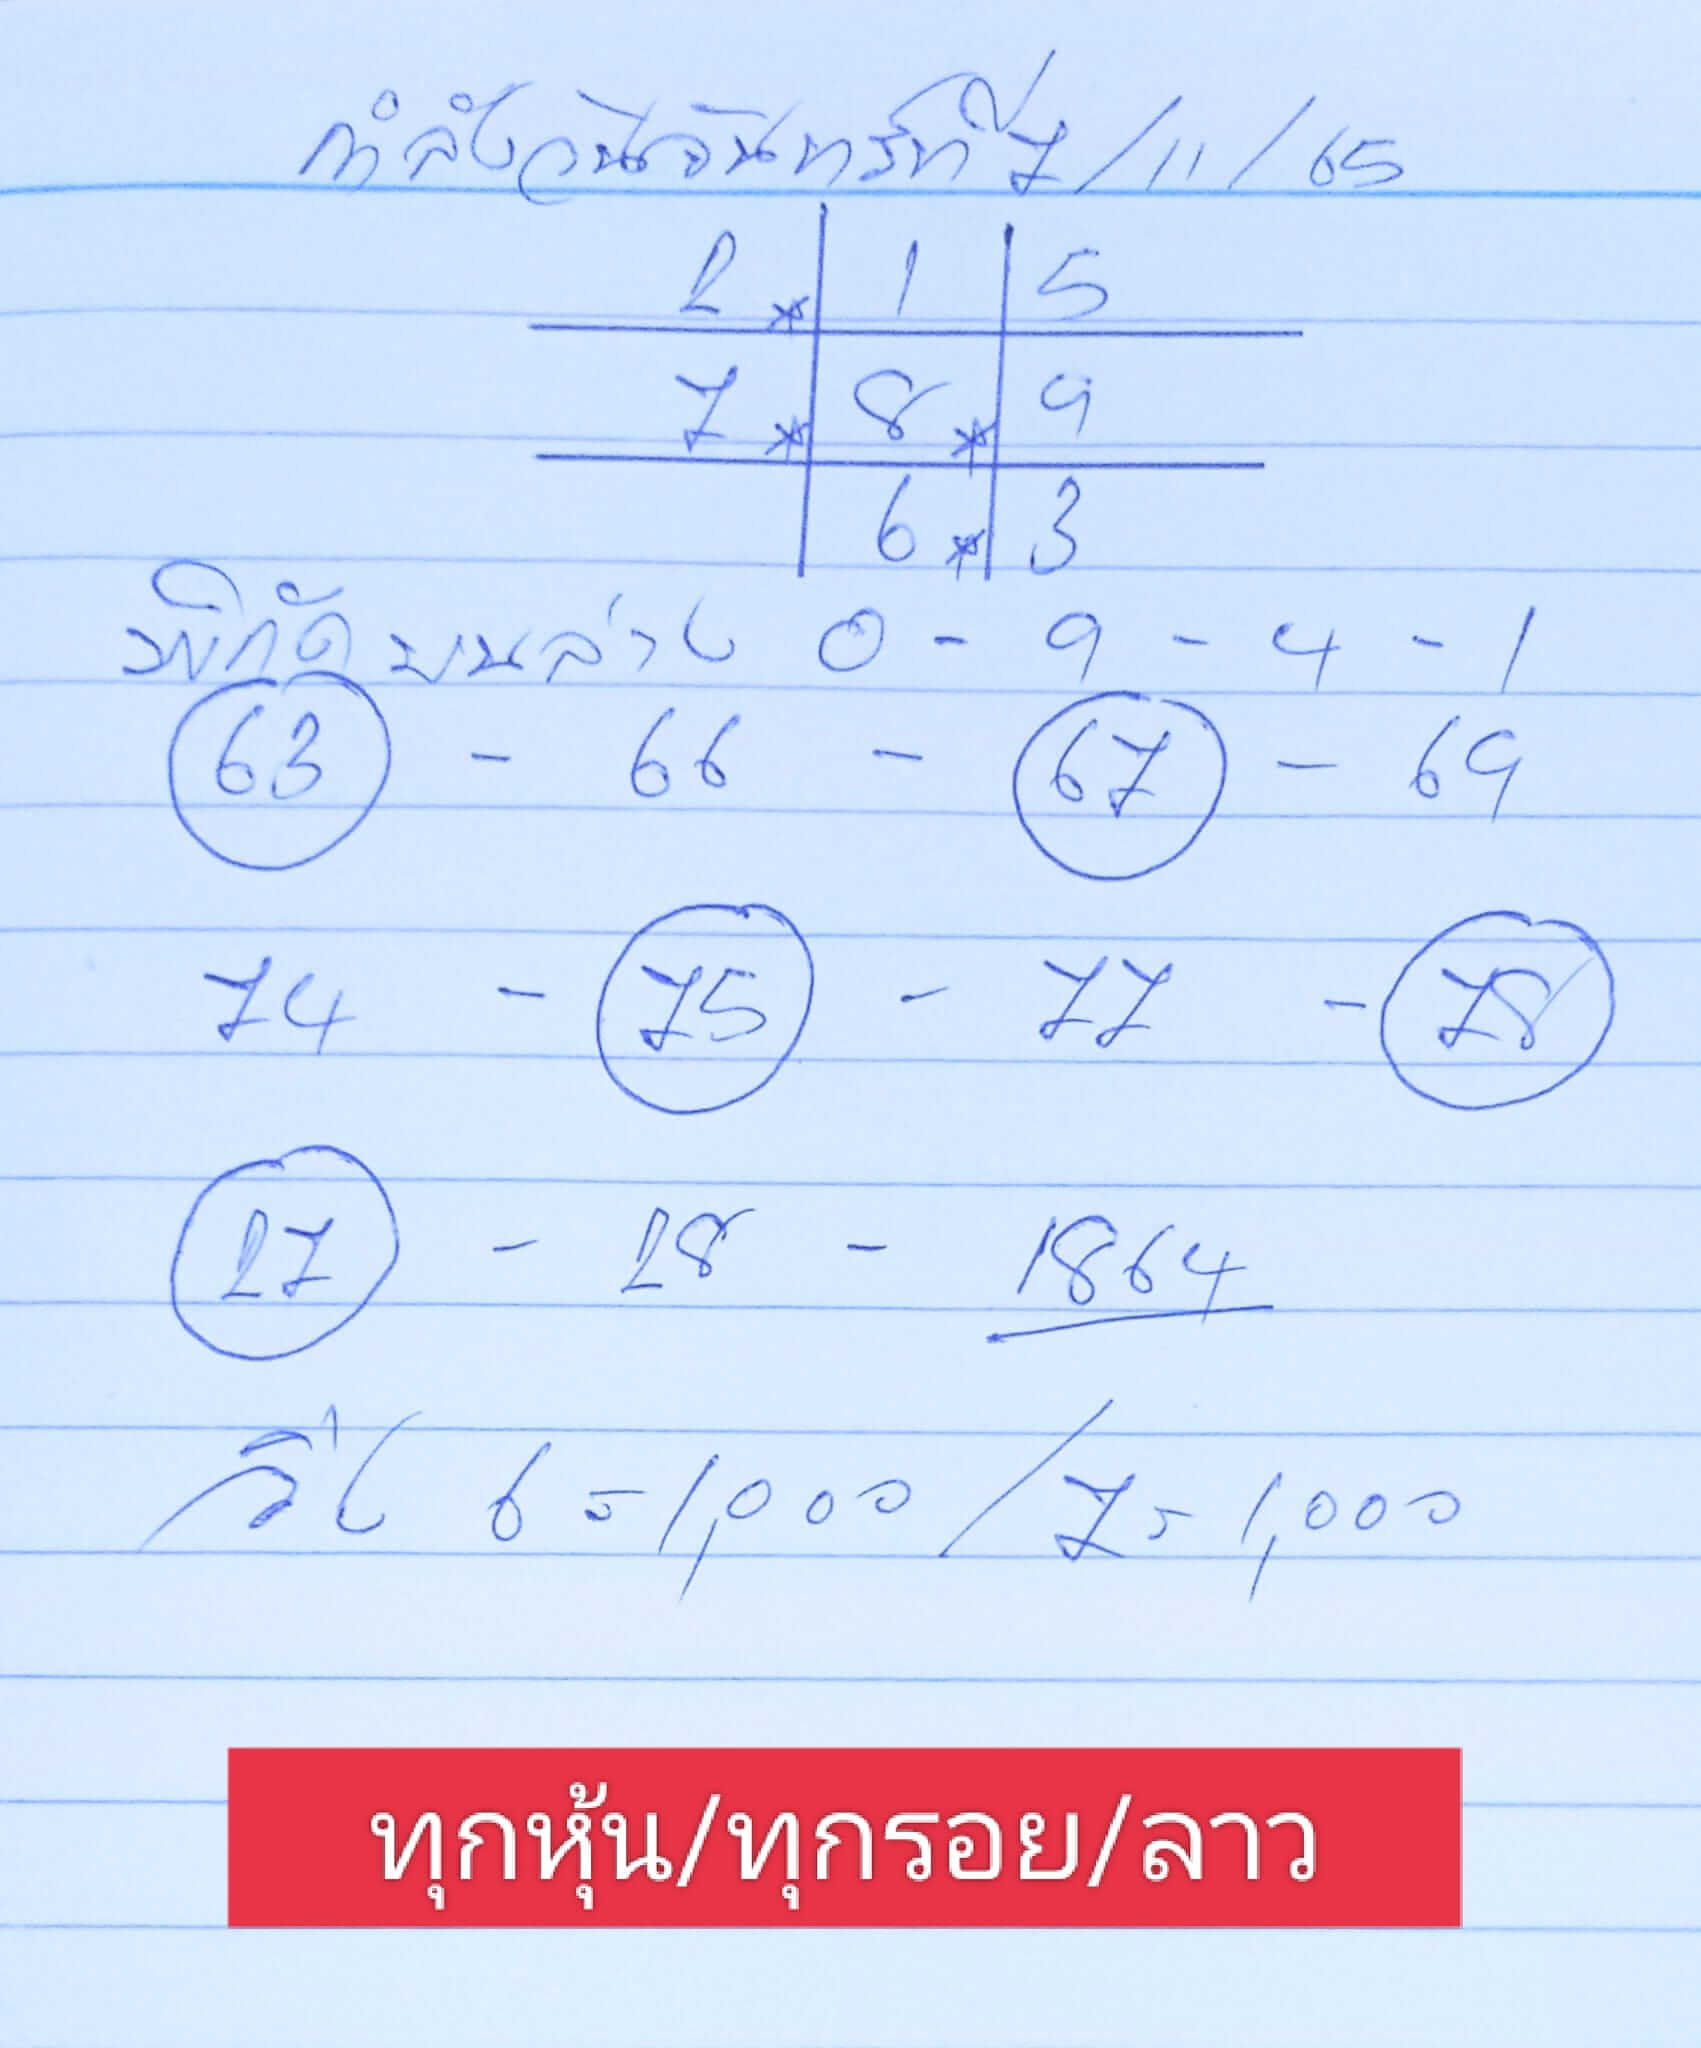 กำลังวันจันทร์ที่ 7/11/65
2* 1 5
7* 8* 9
6* 3
พิกัด บนล่าง 0 - 9 - 4 - 1
63 - 66 - 67 - 69
74 - 75 - 77 - 78
27 - 28 - 1864
วิ่ง 6 = 1,000 / 7 = 1,000
ทุกหุ้น/ทุกรอย/ลาว